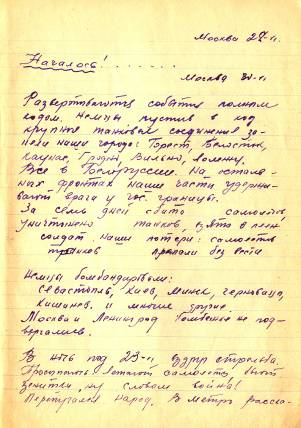 Москва 24-VI.
Началось! . . . . . .
Москва 30-VI
Развертываются события полным
ходом. Немцы пустив в ход
крупные танковые соединения за-
няли наши города: Брест, Белосток,
Каунас, Гродно, Вильно, Ломжу.
Все в Белоруссии. На осталь-
ных фронтах наши части удержи-
вают врага у гос. границы.
За семь дней сбито самолетов,
уничтожено танков, взято в плен
солдат наши потери: самолетов
танков пропали без вести
Немцы бомбардировали:
Севастополь, Киев, Минск, Черновицы,
Кишинев, и многие другие.
Москва и Ленинград бомбежке не под-
вергались.
В ночь под 23-VI вдруг стрельба.
летают самолеты, бьют
зенитки, ну словом война!
Перепугался народ. В метро расска-